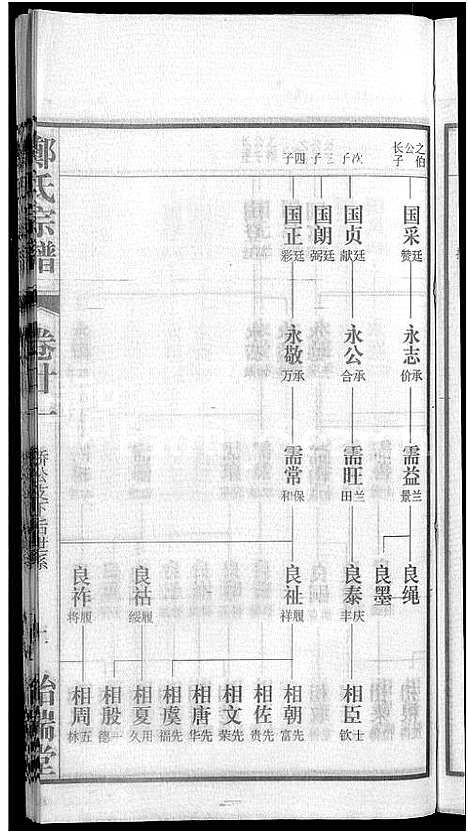 之伯公长子
次子
三子
四子
国采 廷赞
国贞 廷献
国朗 廷弼
国正 廷彩
永志 承价
永公 承合
永敬 承万
需益 兰景
需旺 兰田
需常 保和
良绳
良墨
良泰 庆丰
良祉 履祥
良祜 履绥
良祚 履将
相臣 士钦
相朝 先富
相佐 先贵
相文 先荣
相唐 先华
相虞 先福
相夏 用久
相殷 一德
相周 五林
郑氏宗谱
卷廿一
公支下
世系
治瑞堂